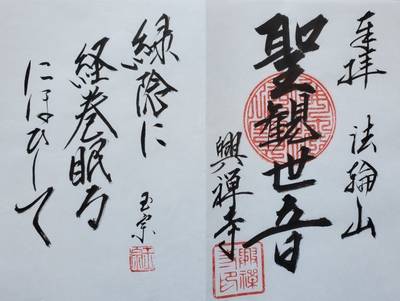 奉拝 法輪山
聖観世音
興禅寺
緑陰に
経巻眠る
にほひして
玉宗